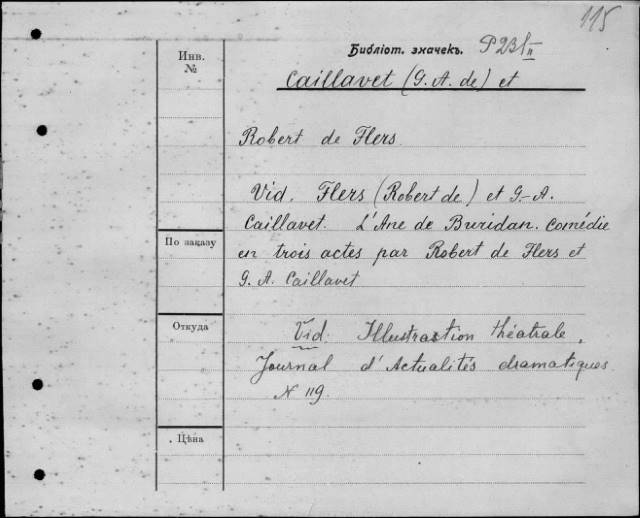 115
Библіот. значекъ.
Инв.
№
Caillavet (G. A. de) et
Robert de Flers.
Vid. Flers (Robert de) et G.-A.
Caillavet. L'Ane de Buridan. Comédie
По заказу
en trois actes par Robert de Flers et
G. A. Caillavet
Откуда
Vid. Illustraction théatrale,
Journal d'Actualités dramatiques
N 119.
Цѣна